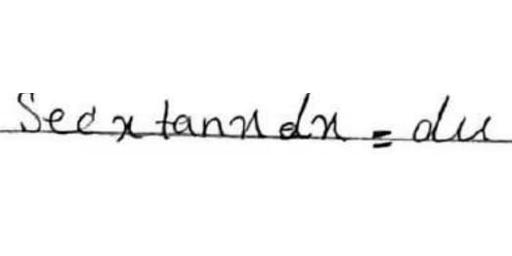 Secx tanx dx = du